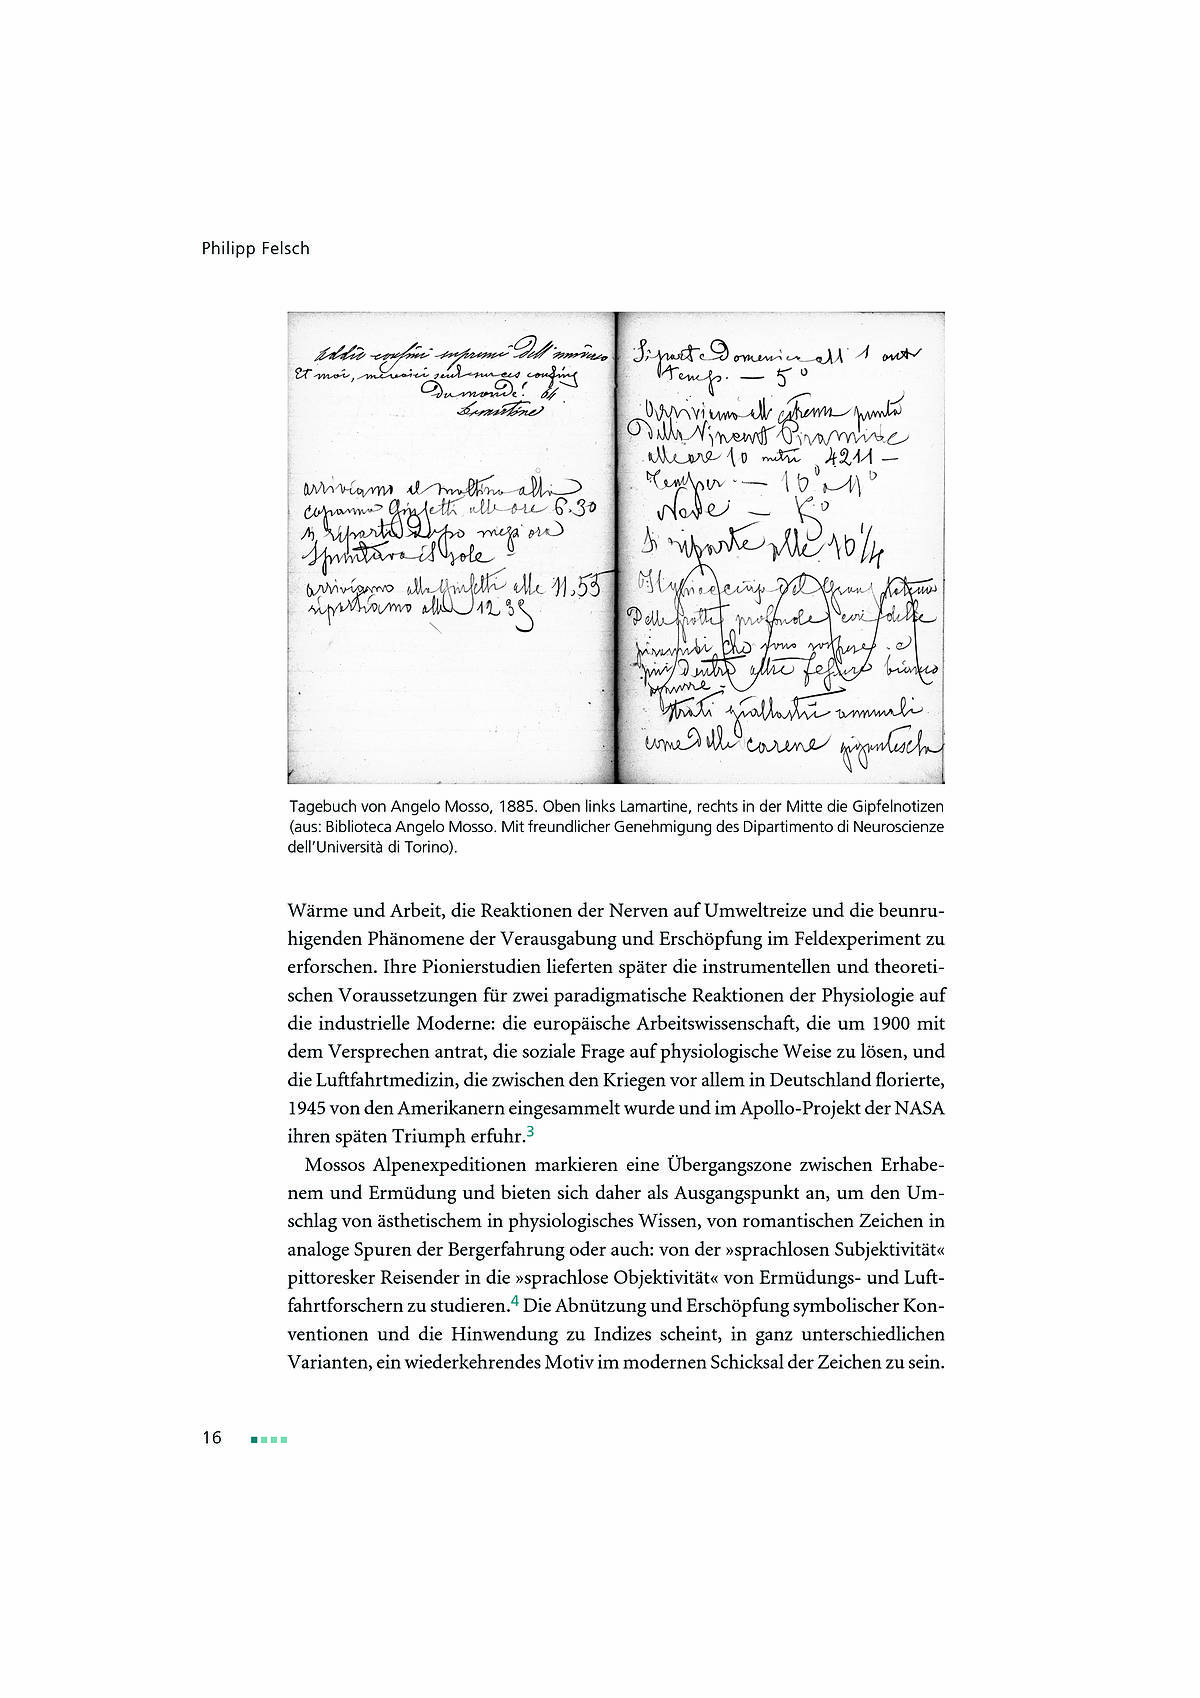 Philipp Felsch
Et moi, me voici seul sur ces confins
du monde!
Lamartine
arriviamo il mattino alla
capanna Gnifetti alle ore 6.30
si riparte dopo mezz'ora
Spuntava il sole
arriviamo alla Gnifetti alle 11,55
ripartiamo alle 12 35
Si parte Domenica all' 1 ant
Temp. — 5°
Arriviamo all estrema punta
della Vincent Piramide
alle ore 10 metri 4211 —
Temper. — 10° a 11°
Neve —
Si riparte alle 10 1/4
del Gran
Delle grotte profonde
che sono
più dentro altre bianco
Strati giallastri annuali
come delle carene gigantesche
Tagebuch von Angelo Mosso, 1885. Oben links Lamartine, rechts in der Mitte die Gipfelnotizen
(aus: Biblioteca Angelo Mosso. Mit freundlicher Genehmigung des Dipartimento di Neuroscienze
dell'Università di Torino).
Wärme und Arbeit, die Reaktionen der Nerven auf Umweltreize und die beunru-
higenden Phänomene der Verausgabung und Erschöpfung im Feldexperiment zu
erforschen. Ihre Pionierstudien lieferten später die instrumentellen und theoreti-
schen Voraussetzungen für zwei paradigmatische Reaktionen der Physiologie auf
die industrielle Moderne: die europäische Arbeitswissenschaft, die um 1900 mit
dem Versprechen antrat, die soziale Frage auf physiologische Weise zu lösen, und
die Luftfahrtmedizin, die zwischen den Kriegen vor allem in Deutschland florierte,
1945 von den Amerikanern eingesammelt wurde und im Apollo-Projekt der NASA
ihren späten Triumph erfuhr.3
Mossos Alpenexpeditionen markieren eine Übergangszone zwischen Erhabe-
nem und Ermüdung und bieten sich daher als Ausgangspunkt an, um den Um-
schlag von ästhetischem in physiologisches Wissen, von romantischen Zeichen in
analoge Spuren der Bergerfahrung oder auch: von der »sprachlosen Subjektivität«
pittoresker Reisender in die »sprachlose Objektivität« von Ermüdungs- und Luft-
fahrtforschern zu studieren.4 Die Abnützung und Erschöpfung symbolischer Kon-
ventionen und die Hinwendung zu Indizes scheint, in ganz unterschiedlichen
Varianten, ein wiederkehrendes Motiv im modernen Schicksal der Zeichen zu sein.
16